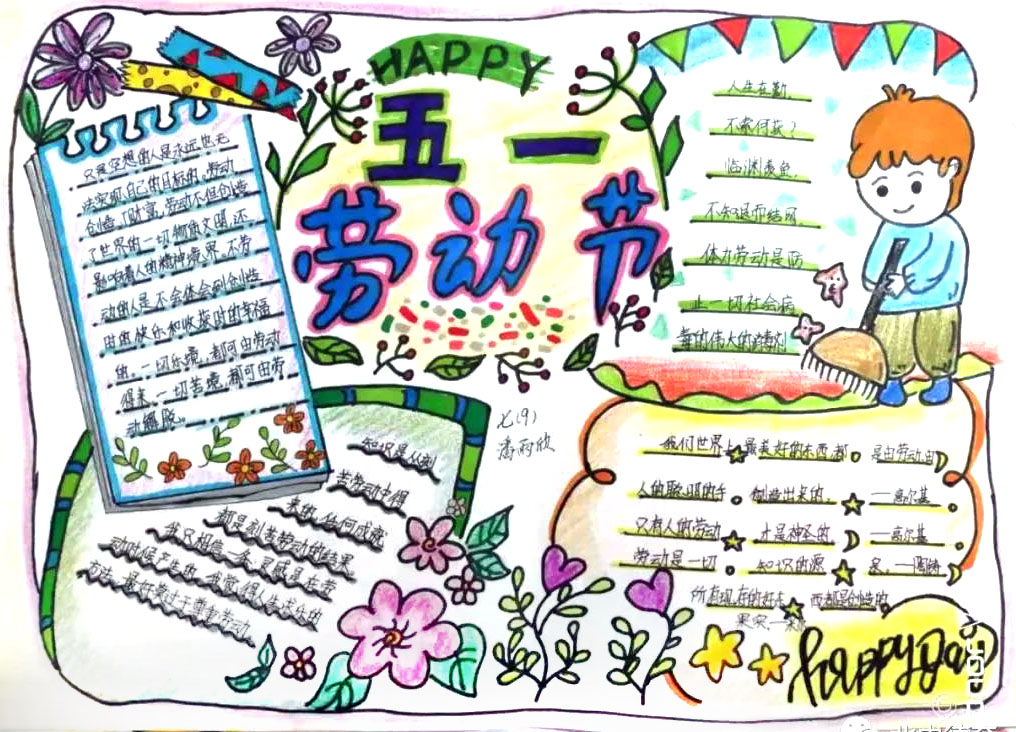 HAPPY
五一
劳动节
只是空想的人是永远也无
法实现自己的目标的,劳动
创造了财富,劳动不但创造
了世界的一切物质文明,还
影响着人的精神境界,不劳
动的人是不会体会到创造
时的快乐和收获时的幸福
的。一切乐境,都可由劳动
得来,一切苦境,都可由劳
动解脱。
人生在勤,
不索何获?
临渊羡鱼,
不如退而结网。
体力劳动是防
止一切社会病
毒的伟大的消毒剂
七(9)
潘雨欣
知识是从刻
苦劳动中得
来的,任何成就
都是刻苦劳动的结果
我只相信一条:灵感是在劳
动时候产生的。我觉得人生求乐的
方法,最好莫过于尊重劳动。
我们世界上最美好的东西,都 是由劳动,由
人的聪明的手 创造出来的。 一高尔基
只有人的劳动 才是神圣的 一高尔基
劳动是一切 知识的源 泉。一陶铸
所有现存的好东 西都是创造的
果实。一
happy Day